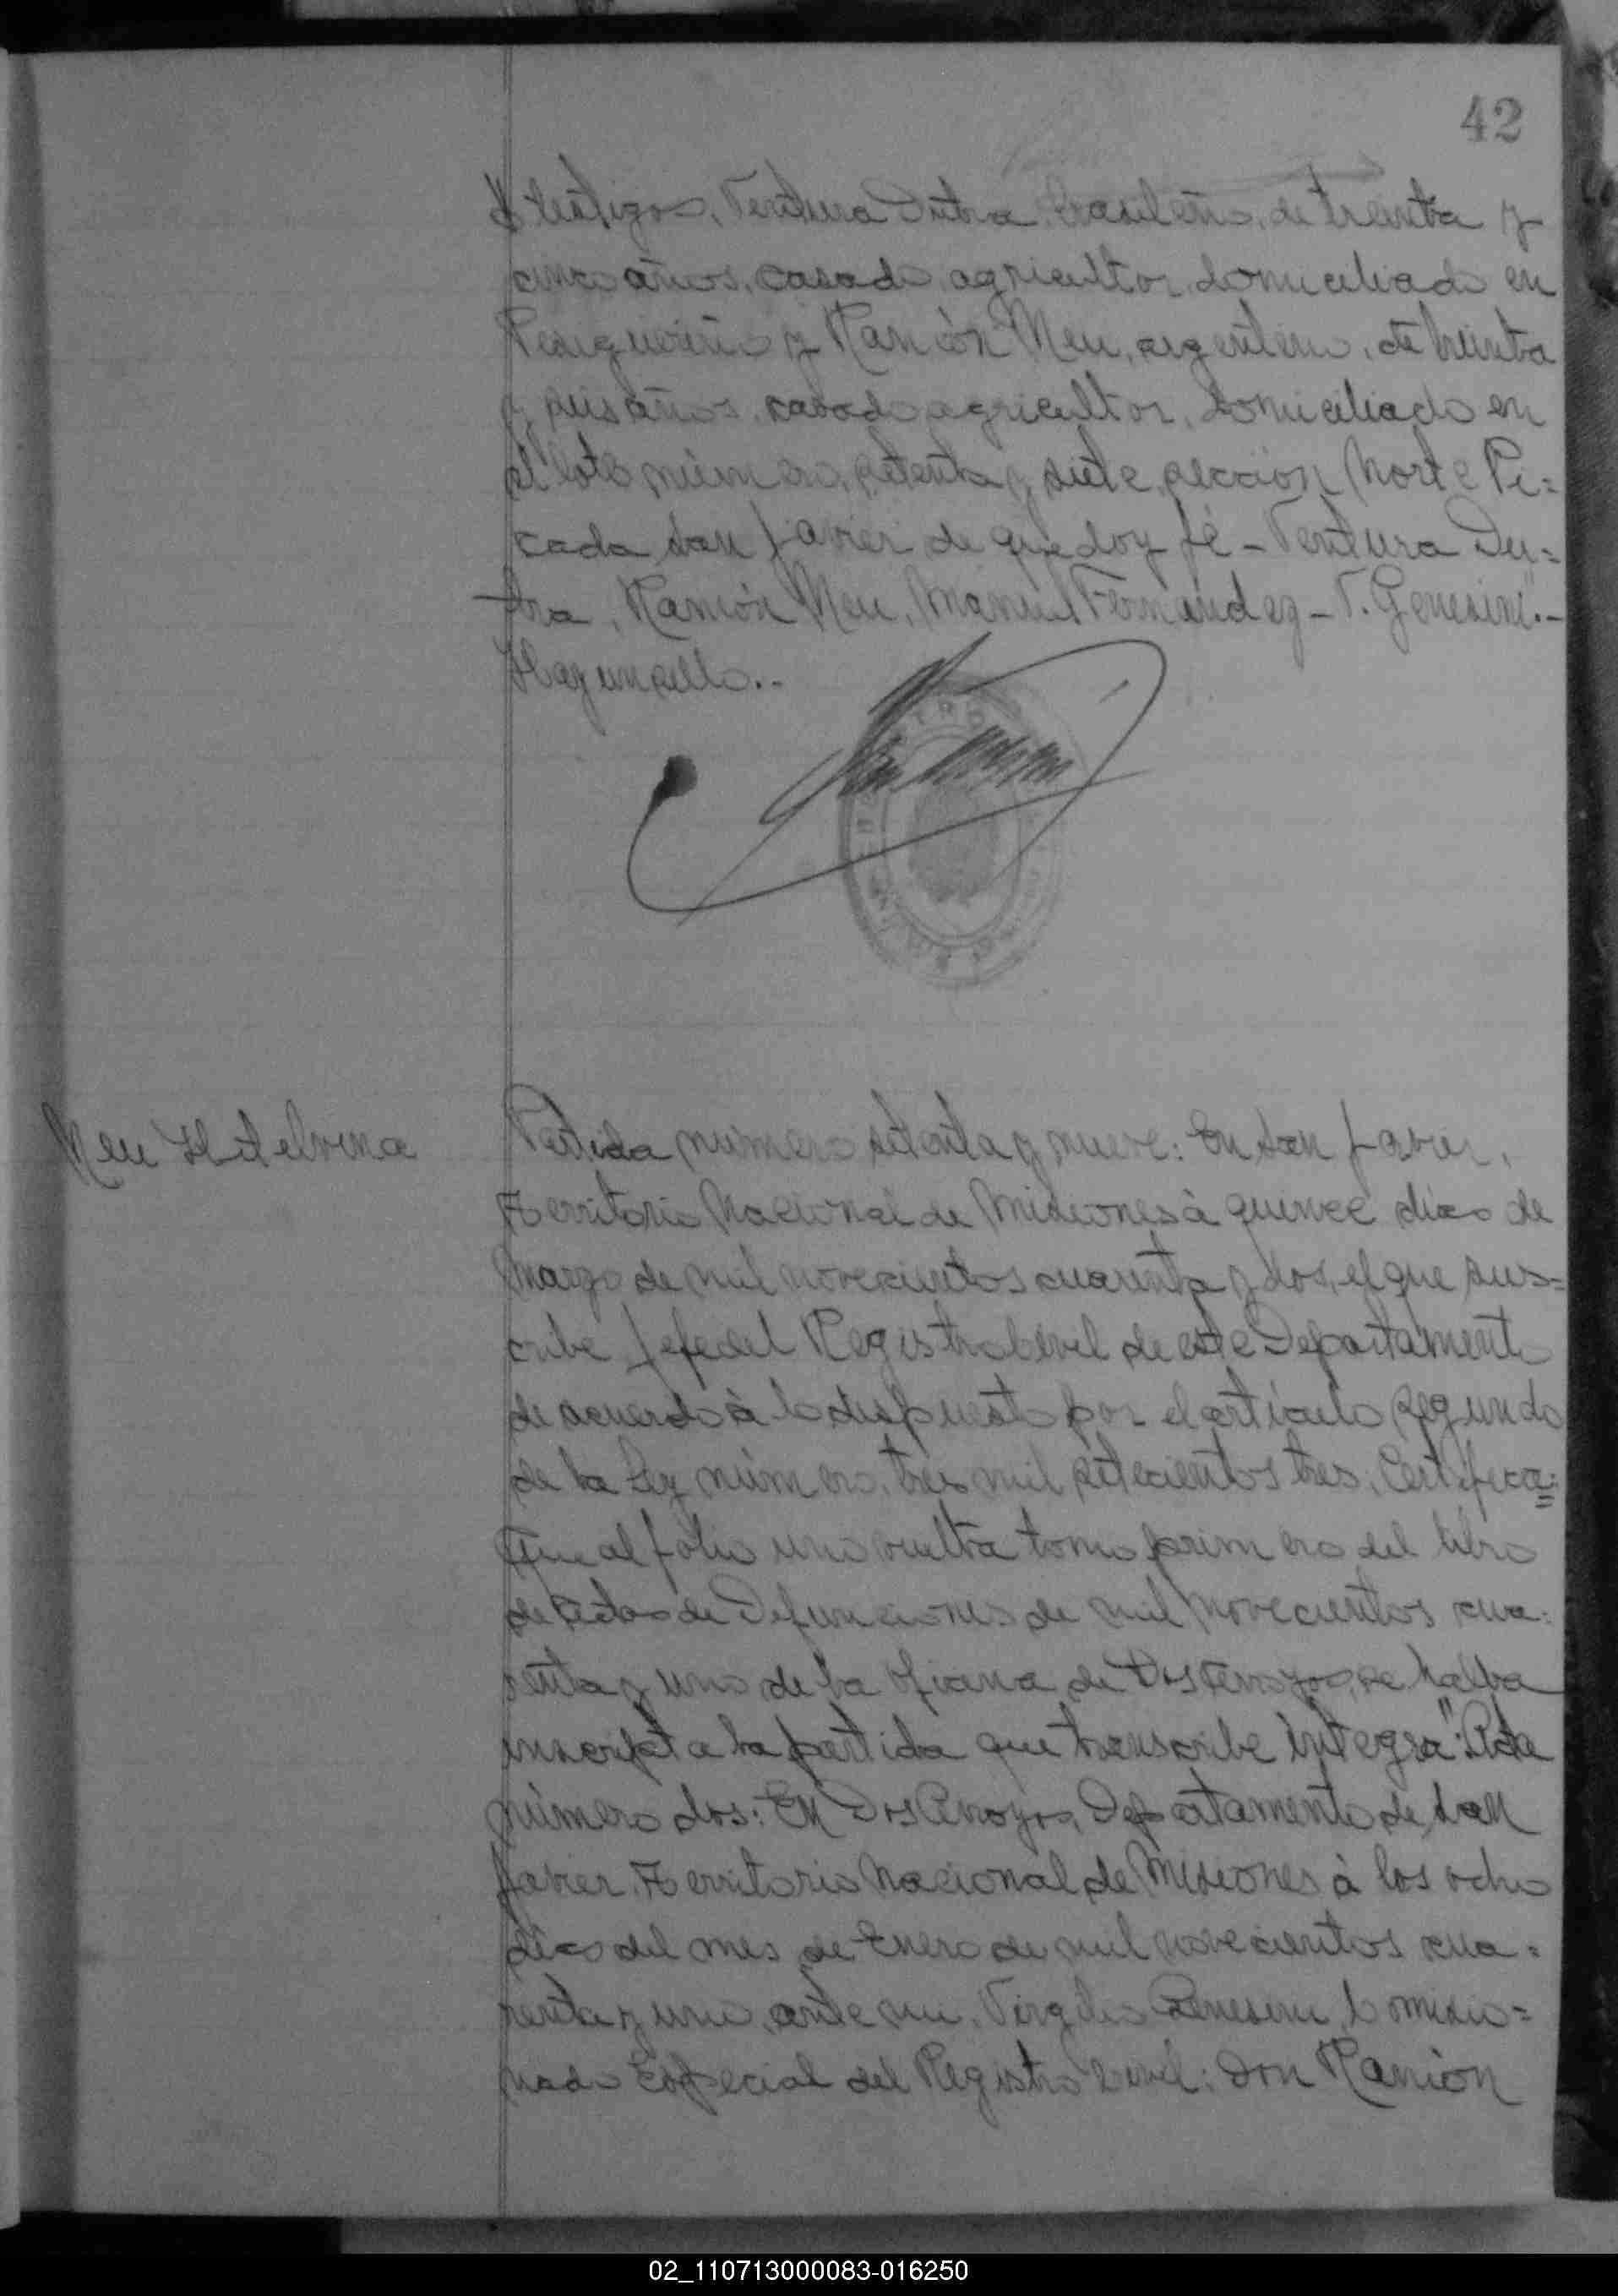 42
testigos, Ventura Dutra, brasileño, de treinta y
cinco años, casado, agricultor, domiciliado en
y Ramón Neu, argentino, de treinta
y seis años, casado agricultor, domiciliado en
el lote número, setenta y siete, sección Norte Pi=
cada San Javier de que doy fé - Ventura Du=
tra, Ramón Neu, Manuel Fernández - V. Genesini".-
Hay un sello..-
Neu Etelvina
Partida número setenta y nueve: En San Javier,
Territorio Nacional de Misiones à quince dias de
Marzo de mil novecientos cuarenta y dos, el que sus=
cribe Jefe del Registro Civil de este Departamento
de acuerdo à lo dispuesto por el artículo segundo
de la Ley número, tres mil setecientos tres, Certifica:
Que al folio uno vuelta tomo primero del libro
de actas de Defunciones de mil novecientos cua=
renta y uno de la oficina de Dos Arroyos, se halla
inscripta la partida que transcribe íntegra": Acta
número dos: En Dos Arroyos, Departamento de San
Javier, Territorio Nacional de Misiones à los ocho
dias del mes de Enero de mil novecientos cua=
renta y uno, ante mi, Virgilio Genesini, Comisio=
nado Especial del Registro Civil: Don Ramón
02_110713000083-016250